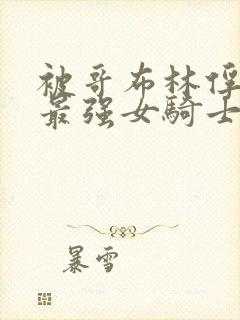 被哥布林俘
最强女騎士
暴雪